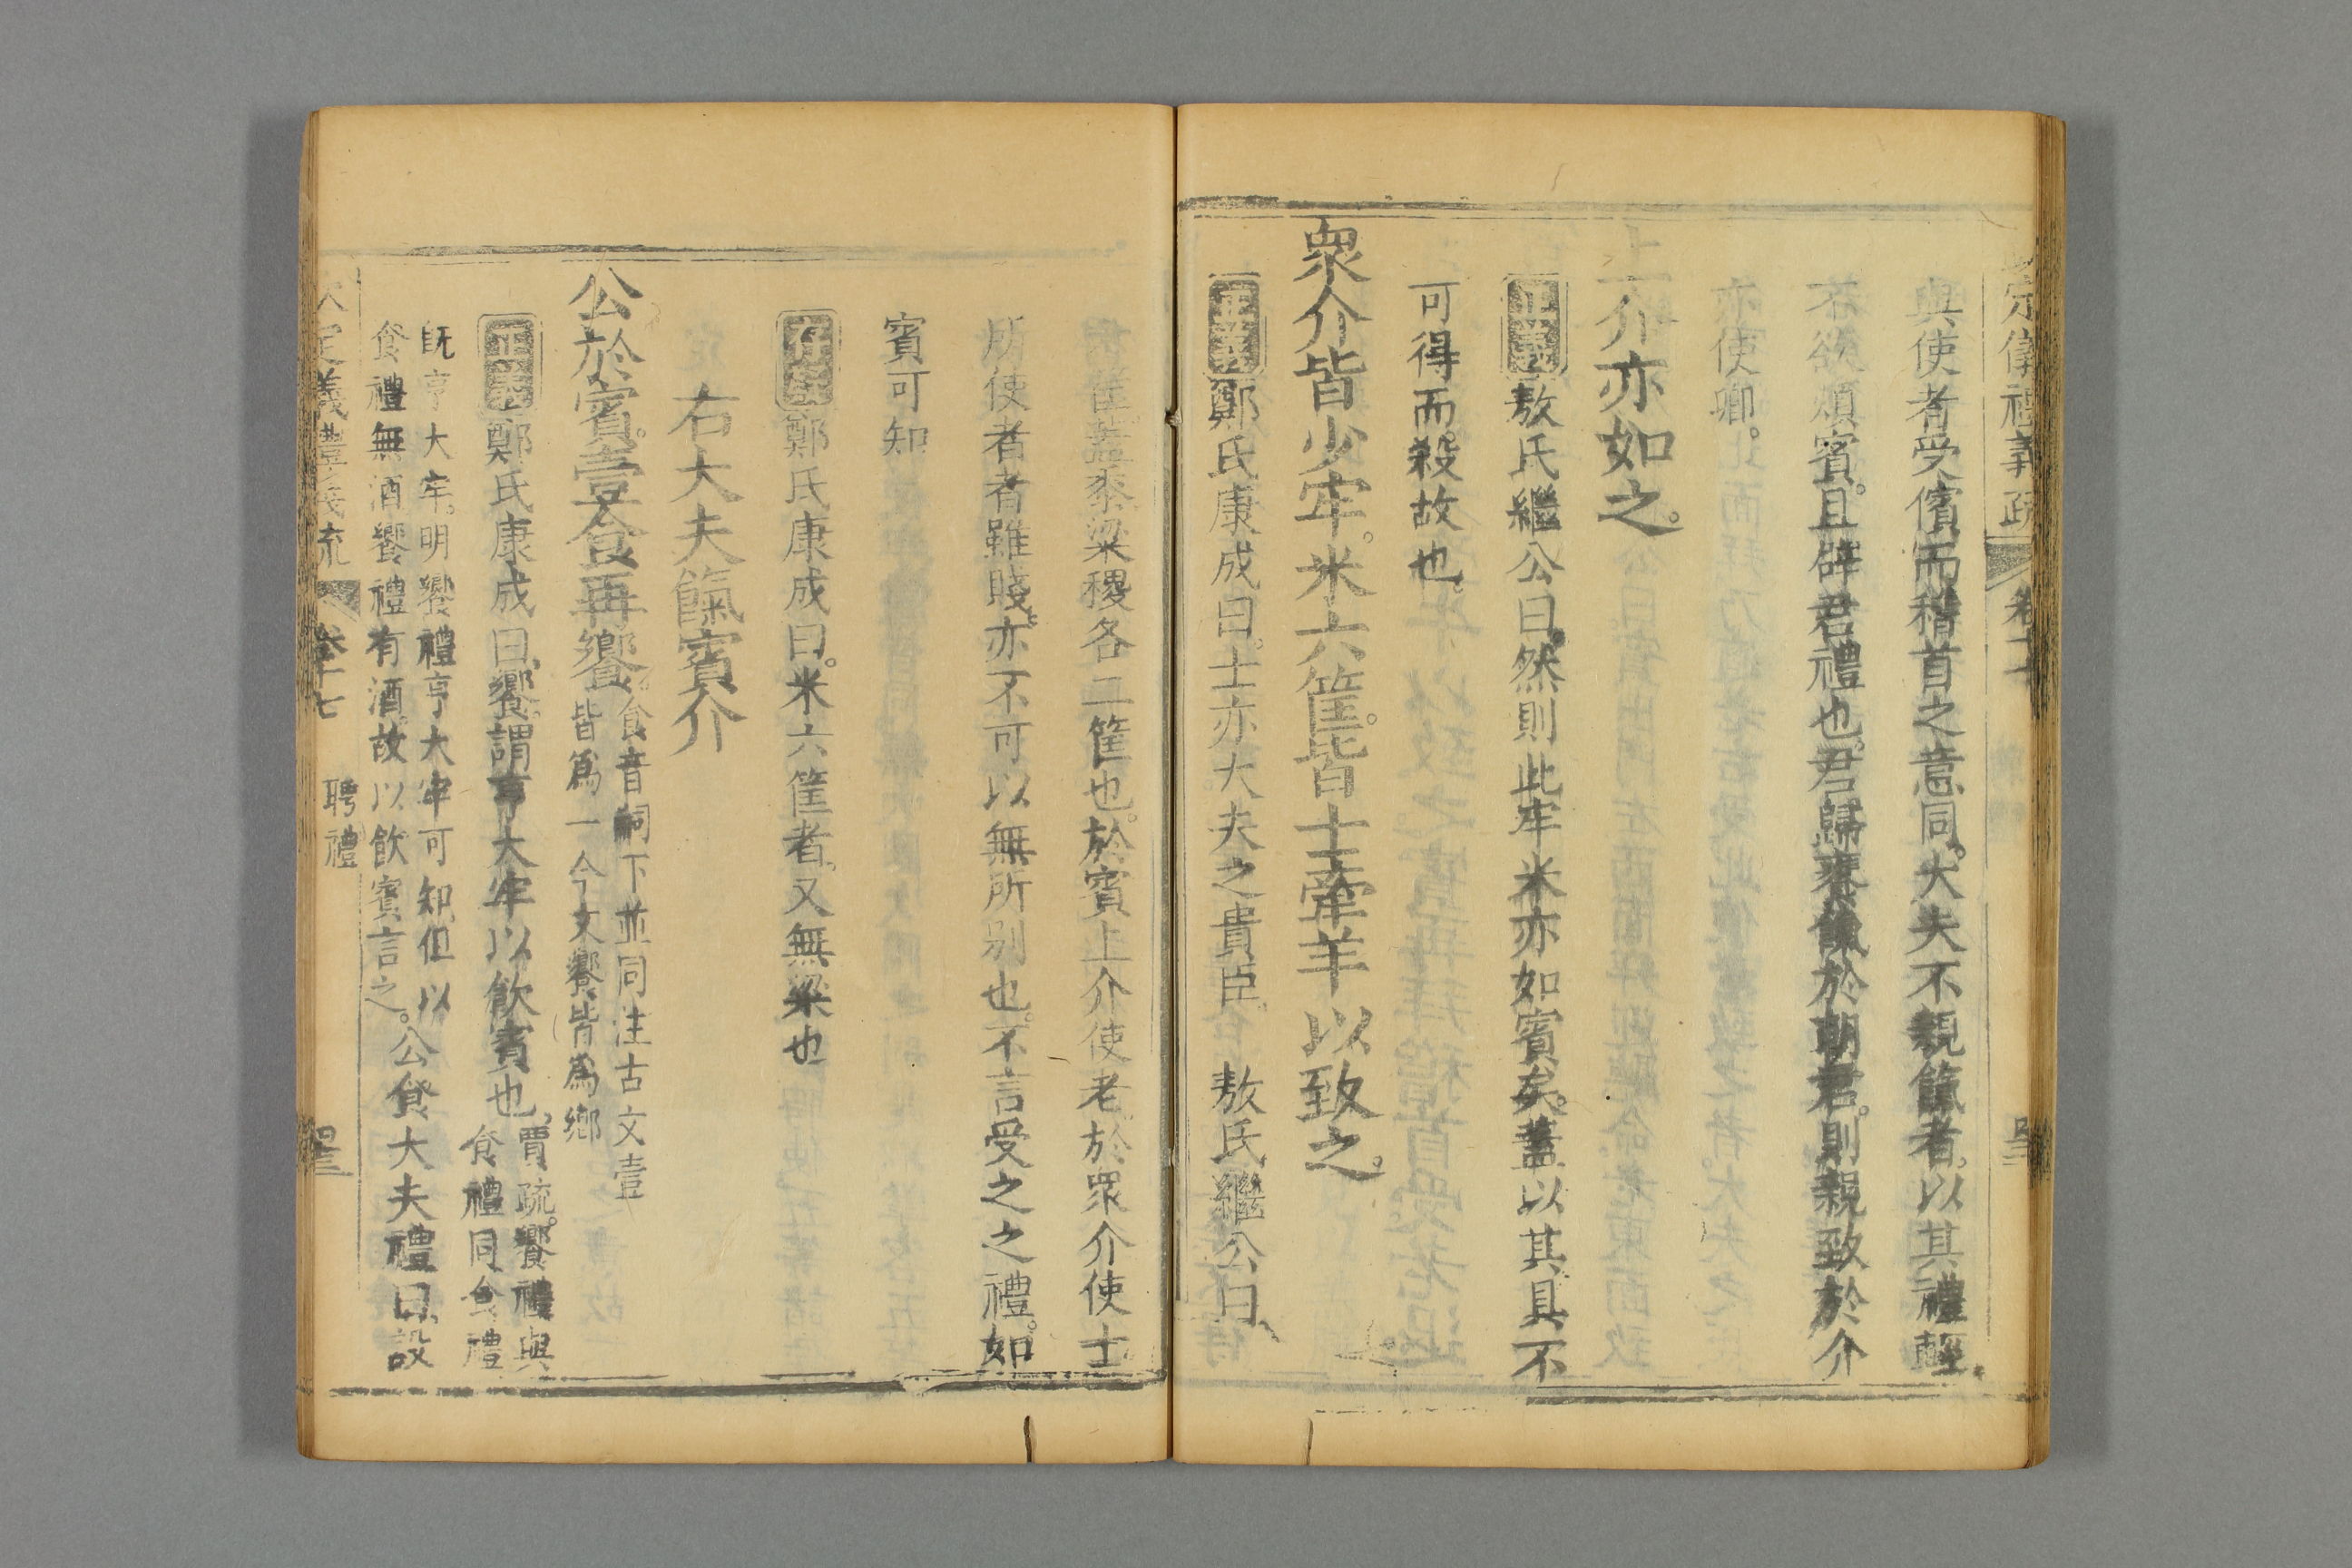 定儀禮義疏 卷十七
與使者受儐而稽首之意同。大夫不親餼者。以其禮輕。
不欲煩賓。且辟君禮也。君歸饔餼於朝君。則親致於介
亦使卿。
上介亦如之。
正義 敖氏繼公曰。然則此牢米亦如賓矣。蓋以其具不
可得而殺故也。
衆介皆少牢。米六筐。皆士牽羊以致之。
正義 鄭氏康成曰。士亦大夫之貴臣。 敖氏繼公曰、
筐蓋黍粱稷各二筐也。於賓上介使老。於眾介使士
所使者者雖賤。亦不可以無所别也。不言受之之禮。如
賓可知
存疑 鄭氏康成曰。米六筐者。又無粱也
右大夫餼賓介
公於賓。壹食再饗
食音嗣下並同注古文壹
皆爲一今文饗皆爲鄉
正義 鄭氏康成曰、饗。謂亨大牢以飲賓也、
賈疏。饗禮與
食禮同食禮
既亨大牢。明饗禮亨大牢可知但以
食禮無酒饗禮有酒故以飲賓言之。
公食大夫禮曰、設
定義豊義疏 卷十七 聘禮